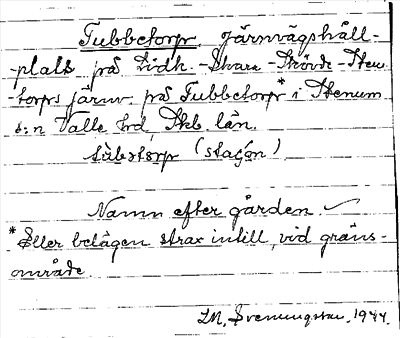 Tubbetorp, järnvägshåll-
-plats på Lidk.-Skara-Skövde-Sten-
-torps järnv. på Tubbetorp* i Stenum
s:n Valle hd, Skb. län.
tùbətɔrp (stašón)
Namn efter gården. ✓
* Eller belägen strax intill, vid gräns-
område.
LM, Sveningstav, 1944.